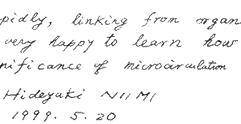 pidly, linking from organ
very happy to learn how
nificance of microcirculation
Hideyuki NIIMI
1999. 5. 20